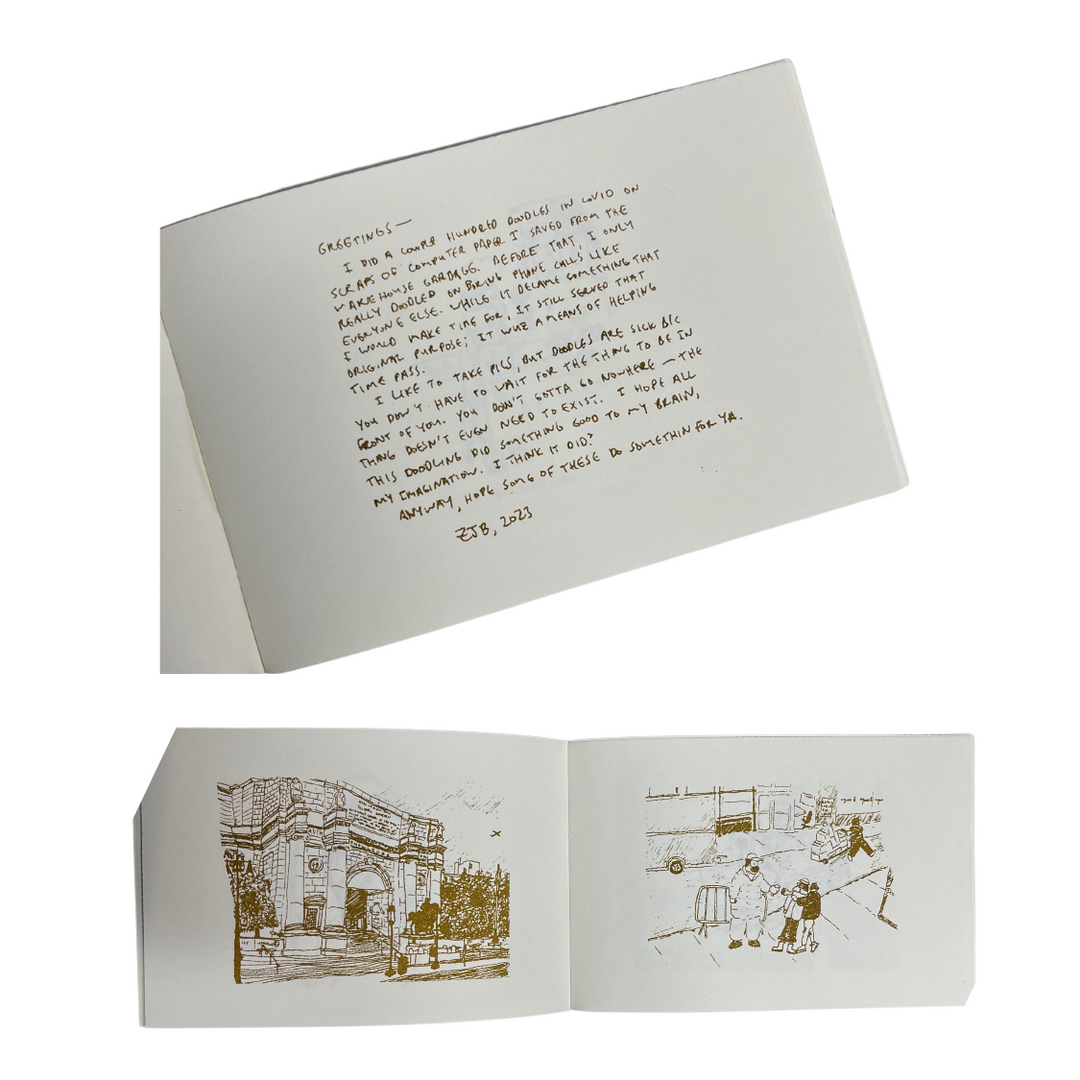 GREETINGS—
I DID A COUPLE HUNDRED DOODLES IN COVID ON
SCRAPS OF COMPUTER PAPER I SAVED FROM THE
WAREHOUSE GARBAGE. BEFORE THAT, I ONLY
REALLY DOODLED ON BORING PHONE CALLS LIKE
EVERYONE ELSE. WHILE IT BECAME SOMETHING THAT
I WOULD MAKE TIME FOR, IT STILL SERVED THAT
ORIGINAL PURPOSE; IT WUZ A MEANS OF HELPING
TIME PASS.
I LIKE TO TAKE PICS, BUT DOODLES ARE SICK B/C
YOU DON'T HAVE TO WAIT FOR THE THING TO BE IN
FRONT OF YOU. YOU DON'T GOTTA GO NOWHERE — THE
THING DOESN'T EVEN NEED TO EXIST. I HOPE ALL
THIS DOODLING DID SOMETHING GOOD TO MY BRAIN,
MY IMAGINATION. I THINK IT DID?
ANYWAY, HOPE SOME OF THESE DO SOMETHIN FOR YA.
ZJB, 2023